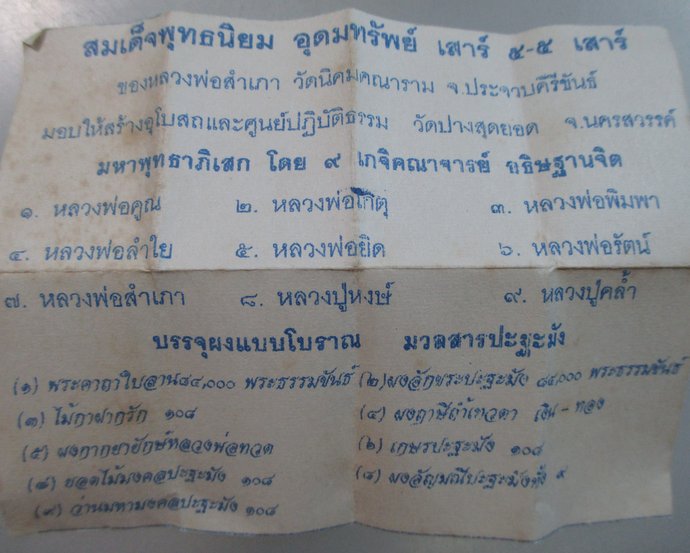 สมเด็จพุทธนิยม อุดมทรัพย์ เสาร์ ๕-๕ เสาร์
ของหลวงพ่อสำเภา วัดนิคมคณาราม จ.ประจาบคีรีขันธ์
มอบให้สร้างอุโบสถและศูนย์ปฏิบัติธรรม วัดปางสุดยอด จ.นครสวรรค์
มหาพุทธาภิเสก โดย ๙ เกจิคณาจารย์ อธิษฐานจิต
๑. หลวงพ่อคูณ ๒. หลวงพ่อโกิตุ ๓. หลวงพ่อพิมพา
๔. หลวงพ่อลำใย ๕. หลวงพ่อยิด ๖. หลวงพ่อรัตน์
๗. หลวงพ่อสำเภา ๘. หลวงปู่หงษ์ ๙. หลวงปู่คล้ำ
บรรจุผงแบบโบราณ มวลสารปะฐะมัง
(๑) พระคาถาใบลาน๘๔,๐๐๐ พระธรรมขันธ์ (๒) ผงอักขระปะฐะมัง ๘๔,๐๐๐ พระธรรมขันธ์
(๓) ไม้กาฝากรัก ๑๐๘ (๔) ผงฤาษีถ้ำเทวดา เงิน - ทอง
(๕) ผงกากยายักษ์หลวงพ่อทวด (๖) เกษรปะฐะมัง ๑๐๘
(๘) ยอดไม้มงคลปะฐะมัง ๑๐๘ (๘) ผงอัญมณีปะฐะมังทั้ง ๙
(๙) ว่านมหามงคลปะฐะมัง ๑๐๘